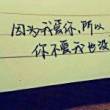 因为我爱你，所以
你不爱我也没